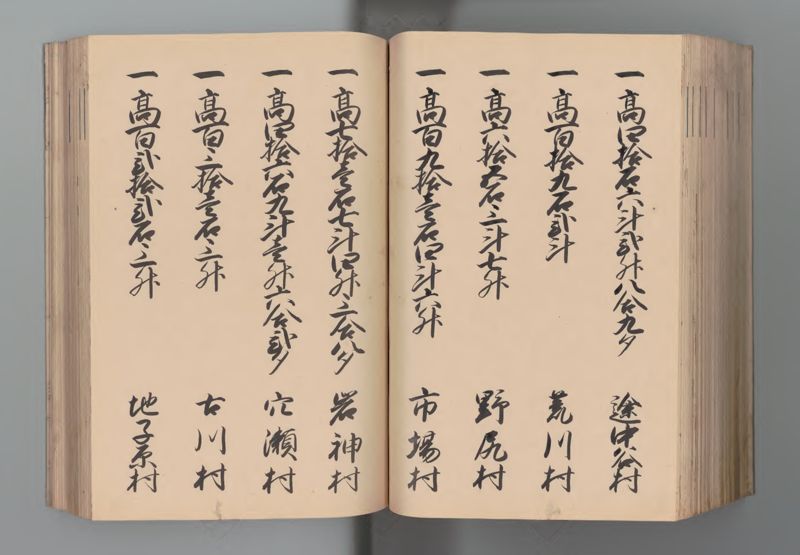 一高四拾石六斗弐升八合九夕 途中谷村
一高百拾九石弐斗 荒川村
一高六拾五石三斗七升 野尻村
一高百九拾壱石四斗六升 市場村
一高七拾壱石七斗四升三合八夕 岩神村
一高四拾六石九斗壱升六合弐夕 穴瀬村
一高百三拾壱石三升 古川村
一高百弐拾弐石三升 地子原村